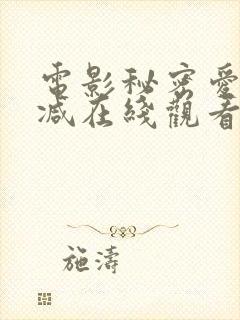 電影秘密愛
減在綫觀看
施濤